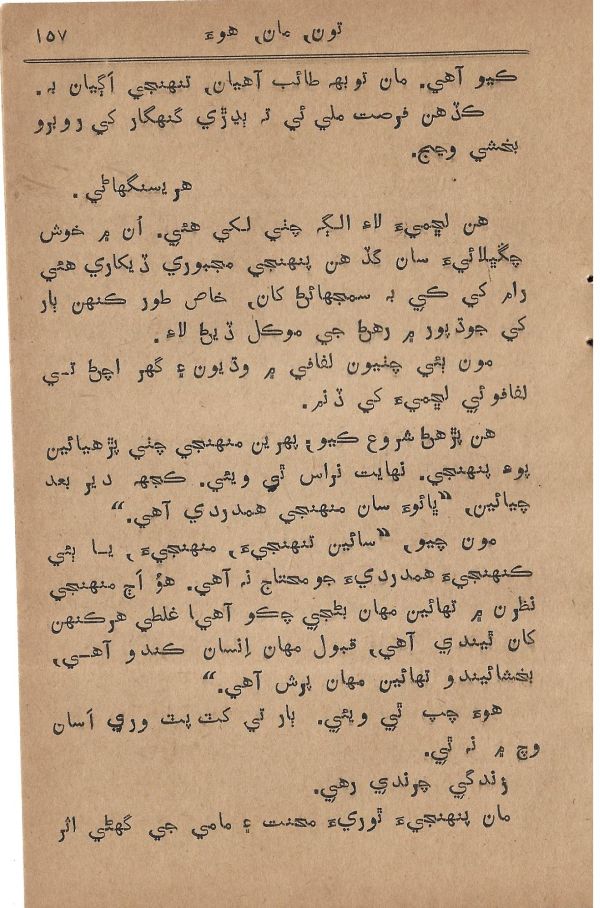 تون, مان, هوءَ ١٥٧
ڪيو آهي. مان توبهہ طائب آهيان, تنهنجي اَڳيان بہ.
ڪڏهن فرصت ملي ئي تہ ٻڍڙي گنهگار کي روبرو
بخشي وڃج.
هريسنگهاڻي.
هن لڇميءَ لاءِ الڳہ چٺي لکي هئي. اُن ۾ خوش
چڱڀلائيءَ سان گڏ هن پنهنجي مجبوري ڏيکاري هئي
رام کي ڪي بہ سمجهائڻ کان, خاص طور ڪنهن ٻار
کي جوڌپور ۾ رهڻ جي موڪل ڏيڻ لاءِ.
مون ٻئي چٺيون لفافي ۾ وڌيون ۽ گهر اچڻ تي
لفافوئي لڇميءَ کي ڏنم.
هن پڙهڻ شروع ڪيو؛ پهرين منهنجي چٺي پڙهيائين
پوءِ پنهنجي. نهايت نراس ٿي ويئي. ڪجهہ دير بعد
چيائين, ”ڀائوءَ سان منهنجي همدردي آهي.“
مون چيو, ”سائين تنهنجيءَ, منهنجيءَ, يا ٻئي
ڪنهنجيءَ همدرديءَ جو محتاج نہ آهي. هؤ اَڄ منهنجي
نظرن ۾ تهائين مهان بڻجي چڪو آهي! غلطي هرڪنهن
کان ٿيندي آهي, قبول مهان اِنسان ڪندو آهي,
بخشائيندو تهائين مهان پرش آهي.“
هوءَ چپ ٿي ويئي. ٻار تي کٽ پٽ وري اَسان
وچ ۾ نہ ٿي.
زندگي چرندي رهي.
مان پنهنجيءَ ٿوريءَ محنت ۽ مامي جي گهڻي اثر